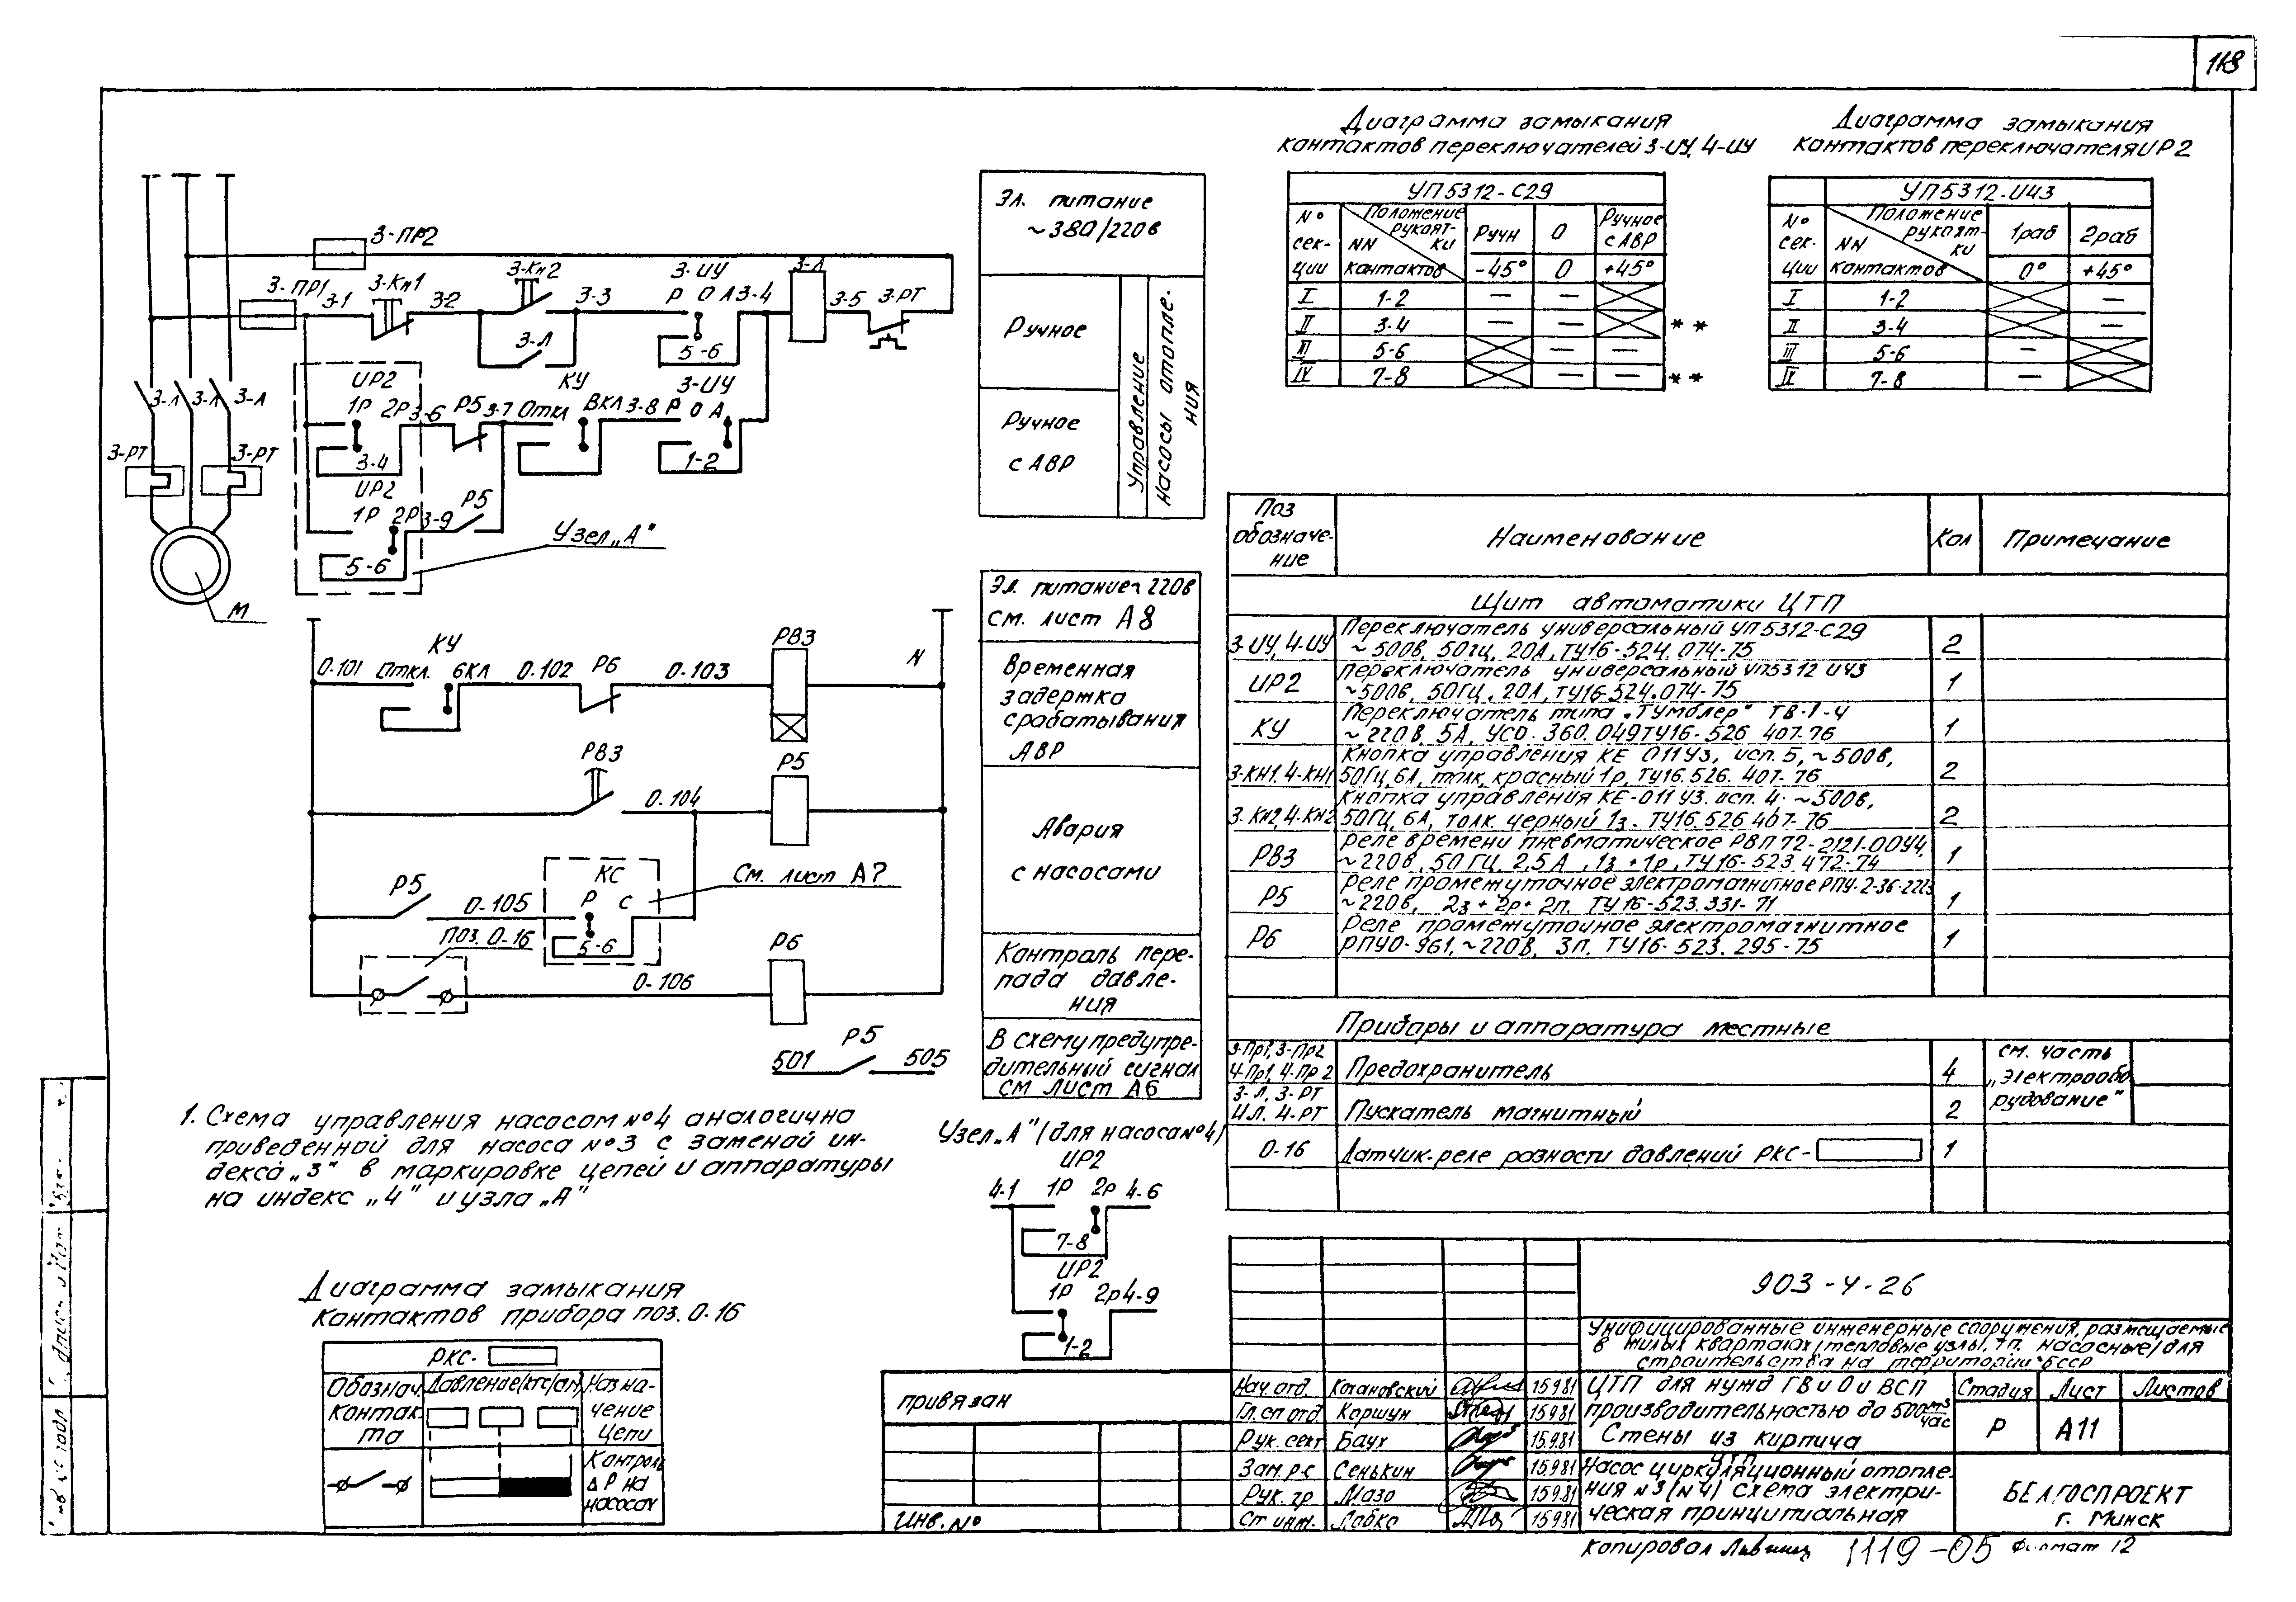 118
Диаграмма замыкания
контактов переключателей 3-ИУ, 4-ИУ
УП5312-С29
N° сек-ции
Положение рукоятки
NN контактов
Ручн
0
Ручное с АВР
-45°
0
+45°
I 1-2 — —
II 3-4 — — **
III 5-6 — —
IV 7-8 — — **
Диаграмма замыкания
контактов переключателя ИР2
УП5312-И43
N° сек-ции
Положение рукоят-ки
NN контактов
1раб
2раб
0°
+45°
I 1-2 —
II 3-4 —
III 5-6 —
IV 7-8 —
3-ПР2
3-ПР1
3-1
3-Кн1
3-2
3-Кн2
3-Л
3-3
3-ИУ
Р 0 А
5-6
3-4
3-Л
3-5
3-РТ
3-Л
3-Л
3-Л
3-РТ
3-РТ
М
ИР2
1Р 2Р
3-4
3-6
Р5
3-7
КУ
Откл Вкл
3-8
3-ИУ
Р 0 А
1-2
ИР2
1Р 2Р
5-6
3-9
Р5
Узел „А"
Эл. питание
~380/220в
Ручное
Ручное
с АВР
Управление
Насосы отопле-
ния
О-101
КУ
Откл. Вкл
О-102
Р6
О-103
РВ3
N
РВ3
О-104
Р5
Р5
О-105
КС
Р С
5-6
См. лист А7
Поз. О-16
О-106
Р6
501
Р5
505
Эл. питание~220в
см. лист А8
Временная
задержка
срабатывания
АВР
Авария
с насосами
Контроль пере-
пада давле-
ния
В схему предупре-
дительный сигнал
см лист А6
1. Схема управления насосом №4 аналогична
приведенной для насоса №3 с заменой ин-
декса „3" в маркировке цепей и аппаратуры
на индекс „4" и узла „А"
Узел „А" (для насоса №4)
ИР2
4-1
1Р 2Р
4-6
7-8
ИР2
1Р 2Р
4-9
1-2
Диаграмма замыкания
контактов прибора поз. О-16
РКС-
Обознач.
контак-
та
Давление (кгс/см
Назна-
чение
цепи
Контроль
ΔР на
насосах
Поз
обозначе-
ние
Наименование
Кол
Примечание
Щит автоматики ЦТП
3-ИУ, 4-ИУ
Переключатель универсальный УП5312-С29
~500в, 50гц, 20А, ТУ16-524.074-75
2
ИР2
Переключатель универсальный УП5312 И43
~500в, 50Гц, 20А, ТУ16-524.074-75
1
КУ
Переключатель типа „Тумблер" ТВ-1-4
~220в, 5А, УСО. 360.049ТУ16-526 407-76
1
3-КН1, 4-КН1
Кнопка управления КЕ 011У3, исп. 5, ~500в,
50Гц, 6А, толк, красный 1р, ТУ16.526.407-76
2
3-Кн2, 4-Кн2
Кнопка управления КЕ-011 У3. исп. 4. ~500в,
50Гц, 6А, толк. черный 1з. ТУ16.526 407-76
2
РВ3
Реле времени пневматическое РВП 72-2121-00У4,
~220в, 50 Гц, 2,5А, 1з+1р, ТУ16-523 472-74
1
Р5
Реле промежуточное электромагнитное РПУ-2-36-2223
~220в, 2з+2р+2п. ТУ16-523.331-71
1
Р6
Реле промежуточное электромагнитное
РПУО-961, ~220в, 3п. ТУ16-523.295-75
1
Приборы и аппаратура местные
3-Пр1, 3-Пр2
4-Пр1, 4-Пр2
Предохранитель
4
см. часть
„Электрообо-
рудование"
3-Л, 3-РТ
4Л. 4-РТ
Пускатель магнитный
2
О-16
Датчик-реле разности давлений РКС-
1
привязан
Инв. №
Нач. отд. Кагановский 15.9.81
Гл. сп отд Коршун 15.9.81
Рук. сект Баух 15.9.81
Зам. р.с Сенькин 15.9.81
Рук. гр Мазо 15.9.81
Ст инж. Лабко 15.9.81
903-4-26
Унифицированные инженерные сооружения, размещаемые
в жилых кварталах (тепловые узлы, тп. насосные) для
строительства на территории БССР
ЦТП для нужд ГВ и О и ВСП
производительностью до 500 м3/час
Стены из кирпича
Стадия Лист Листов
Р А11
ЦТП
Насос циркуляционный отопле-
ния №3 (№4) схема электри-
ческая принципиальная
БЕЛГОСПРОЕКТ
г. Минск
Копировал
1119-05
Формат 12